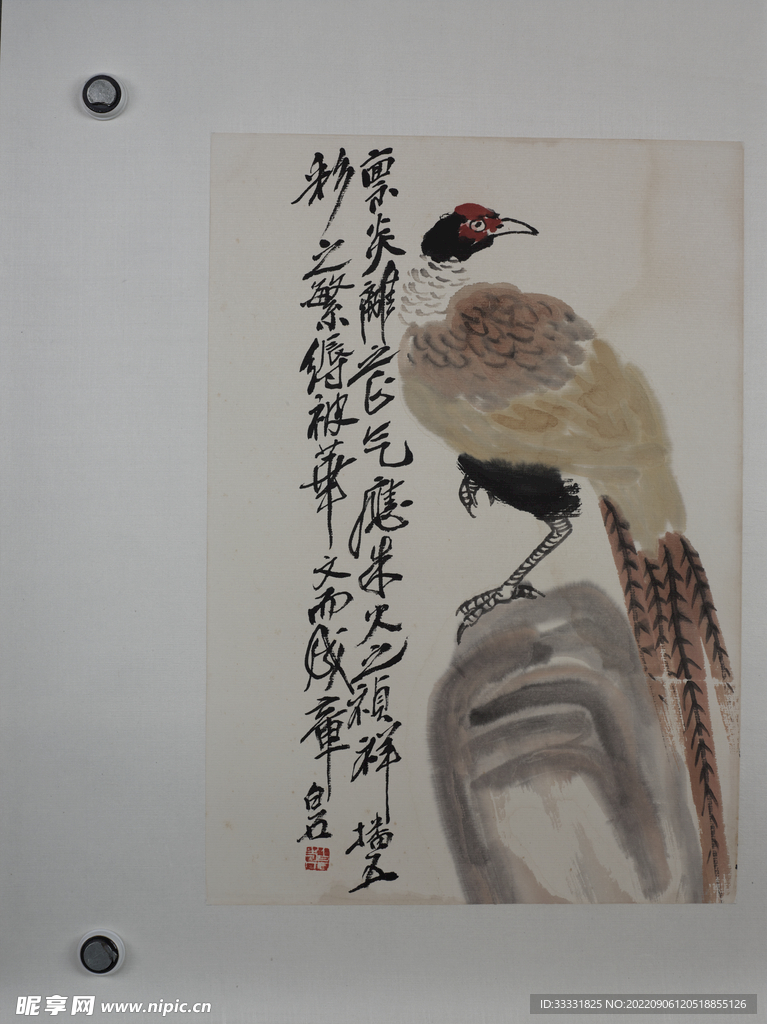 禀炎離之正气應朱火之禎祥播五
彩之繁縟被華文而成章
白石
昵享网 www.nipic.cn
ID:33331825 NO:20220906120518855126